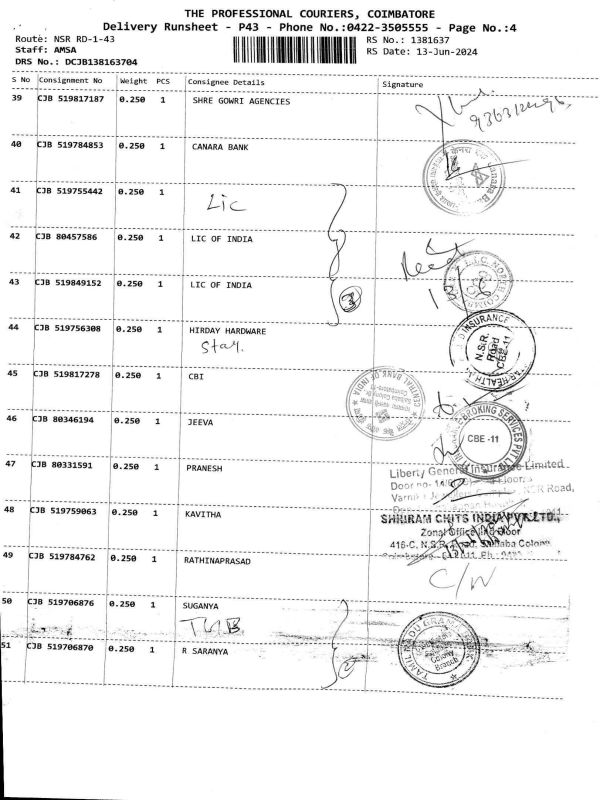 THE PROFESSIONAL COURIERS, COIMBATORE
Delivery Runsheet - P43 - Phone No.:0422-3505555 - Page No.:4
Route: NSR RD-1-43 RS No.: 1381637
Staff: AMSA RS Date: 13-Jun-2024
DRS No.: DCJB138163704
S No Consignment No Weight PCS Consignee Details Signature
39 CJB 519817187 0.250 1 SHRE GOWRI AGENCIES
40 CJB 519784853 0.250 1 CANARA BANK
41 CJB 519755442 0.250 1
LIC
42 CJB 80457586 0.250 1 LIC OF INDIA
43 CJB 519849152 0.250 1 LIC OF INDIA
3
44 CJB 519756308 0.250 1 HIRDAY HARDWARE
Star.
INSURANCE
N.S.R. Road CBE-11
45 CJB 519817278 0.250 1 CBI
CENTRAL BANK OF INDIA
46 CJB 80346194 0.250 1 JEEVA
BROKING SERVICES PVT L
CBE -11
47 CJB 80331591 0.250 1 PRANESH
Liberty General Insurance Limited
Door no-
NSR Road,
48 CJB 519759063 0.250 1 KAVITHA
SHRIRAM CHITS INDIA PVT. LTD.,
Zonal Office
416-C, N.S.R. Road, Saibaba Colony
49 CJB 519784762 0.250 1 RATHINAPRASAD
C/W
50 CJB 519706876 0.250 1 SUGANYA
TMB
51 CJB 519706870 0.250 1 R SARANYA
2
TAMIL NADU GRAMA BANK
Colony
Branch